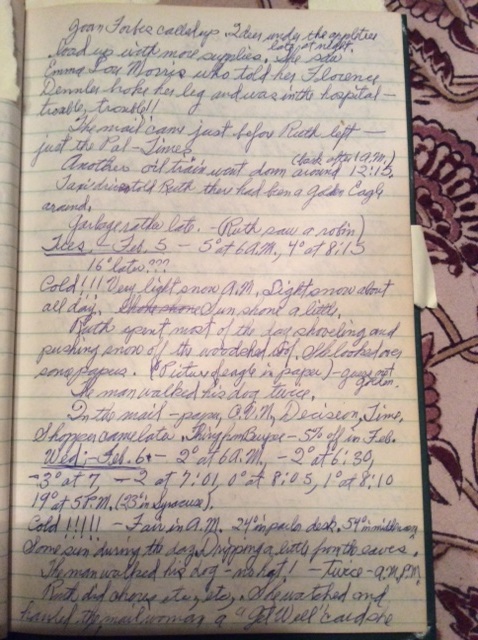 Joan Forbes called up. 2 deer under the appletree
late at night.
load up with more supplies. She saw
Emma Lou Morris who told her Florence
broke her leg and was in the hospital —
trouble, trouble!!
The mail came just before Ruth left —
just the Pal-Times.
(back after 1 A.M.)
Another oil train went down around 12:15.
Taxi driver told Ruth there had been a Golden Eagle
around.
Garbage rather late. - Ruth saw a robin)
Tues. - Feb. 5 - 5° at 6 A.M., 4° at 8:15
16° later???
Cold!!! Very light snow A.M. Light snow about
all day. Sun shone a little.
Ruth spent most of the day shoveling and
pushing snow off the woodshed roof. She looked over
some papers. (Picture of eagle in paper) -
The man walked his dog twice.
In the mail - paper, Decision, Time.
Shopper came later. - 5% off in Feb.
Wed. - Feb. 6 - -2° at 6 A.M., -2° at 6:30,
-3° at 7, -2 at 7:01, 0° at 8:05, 1° at 8:10
19° at 5 P.M. (23° in Syracuse).
Cold!!!!! - Fair in A.M. 24° in parlo desk. 54° in middle
Some sun during the day. Dripping a little from the eaves.
The man walked his dog - no hat! - twice - A.M., P.M.
Ruth did chores etc., etc. She watched and
handed the mail woman a "Get Well" card she